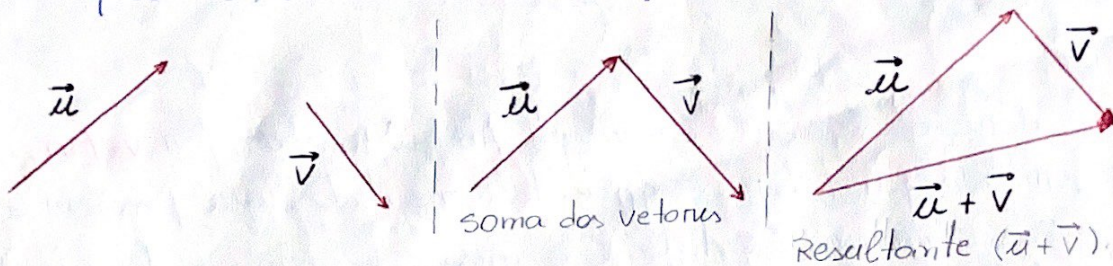 u⃗
v⃗
u⃗
v⃗
soma dos vetores
u⃗
v⃗
u⃗ + v⃗
Resultante (u⃗+v⃗).